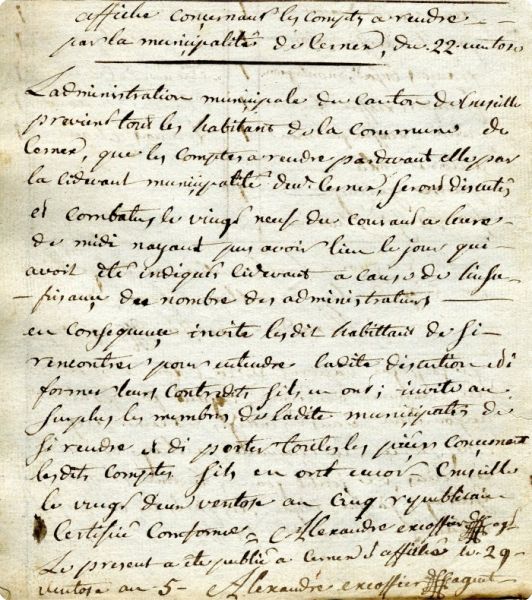 affiche concernant les compte a rendre
par la municipalité de Cernex, du 22 ventose
L'administration municipale du Canton de Cruseille
previent tous les habitant de la Commune de
Cernex, que les comptes a rendre pardevant elle par
la cidevant municipalité de Cernex, seront discutés
et Combatus, le vingt neuf du Courant a heure
de midi nayant pas avoir lieu le jour qui
avoit été indiqués cidevant a cause de linsu-
fisance du nombre des administrateurs
en Consequence invite lesdit habittant de si
rencontrer pour entendre ladite discution et di
former leurs Contredits sils en ont; invite au
surplus les membres de ladite municipalité de
si rendre et di porter toutes les pièces Concernent
lesdits Comptes sils en ont encor Cruseille
le vingt deux ventose au Cinq republicain
Certifié Conforme Alexandre excoffier agt
Le present a été publié a Cernex & affiché le 29
ventose an 5 - Alexandre excoffier agent